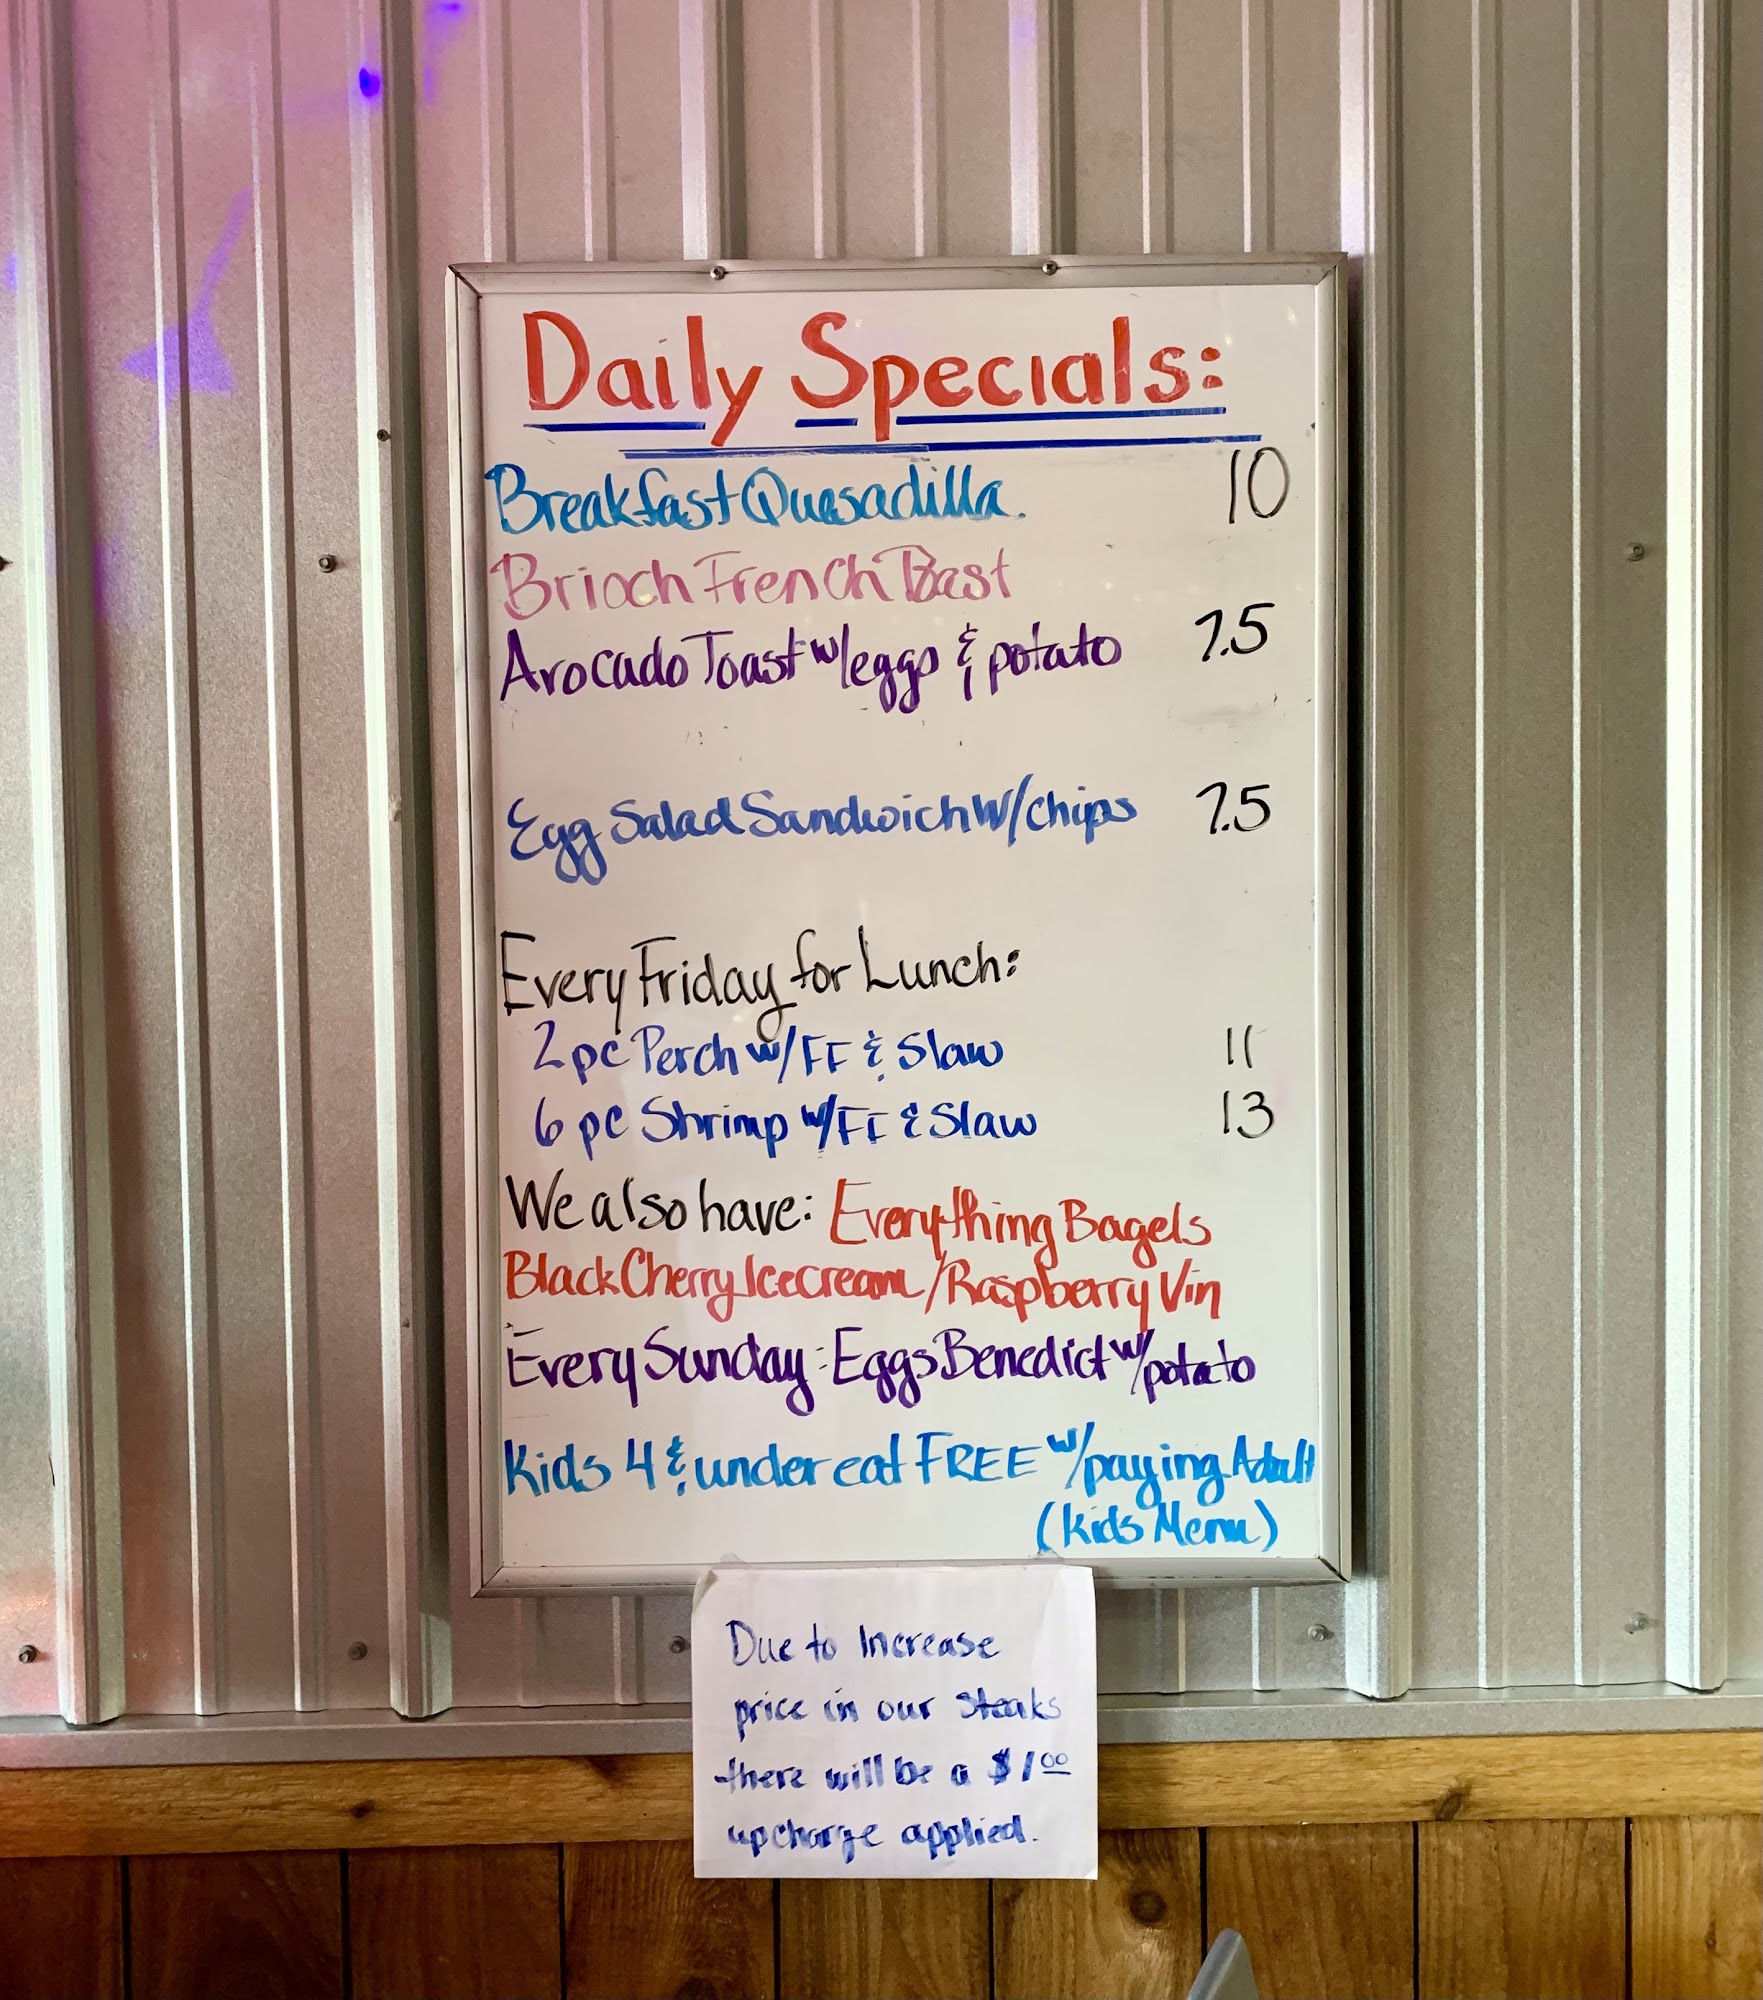 Daily Specials:
Breakfast Quesadilla. 10
Brioch French Toast
Avocado Toast w/eggs & potato 7.5
Egg Salad Sandwich W/chips 7.5
Every Friday for Lunch:
2pc Perch w/FF & Slaw 11
6 pc Shrimp w/FF & Slaw 13
We also have: Everything Bagels
Black Cherry Icecream/Raspberry Vin
Every Sunday: Eggs Benedict w/potato
Kids 4 & under eat FREE w/paying Adult
(Kids Menu)
Due to Increase
price in our steaks
there will be a $1.00
upcharge applied.